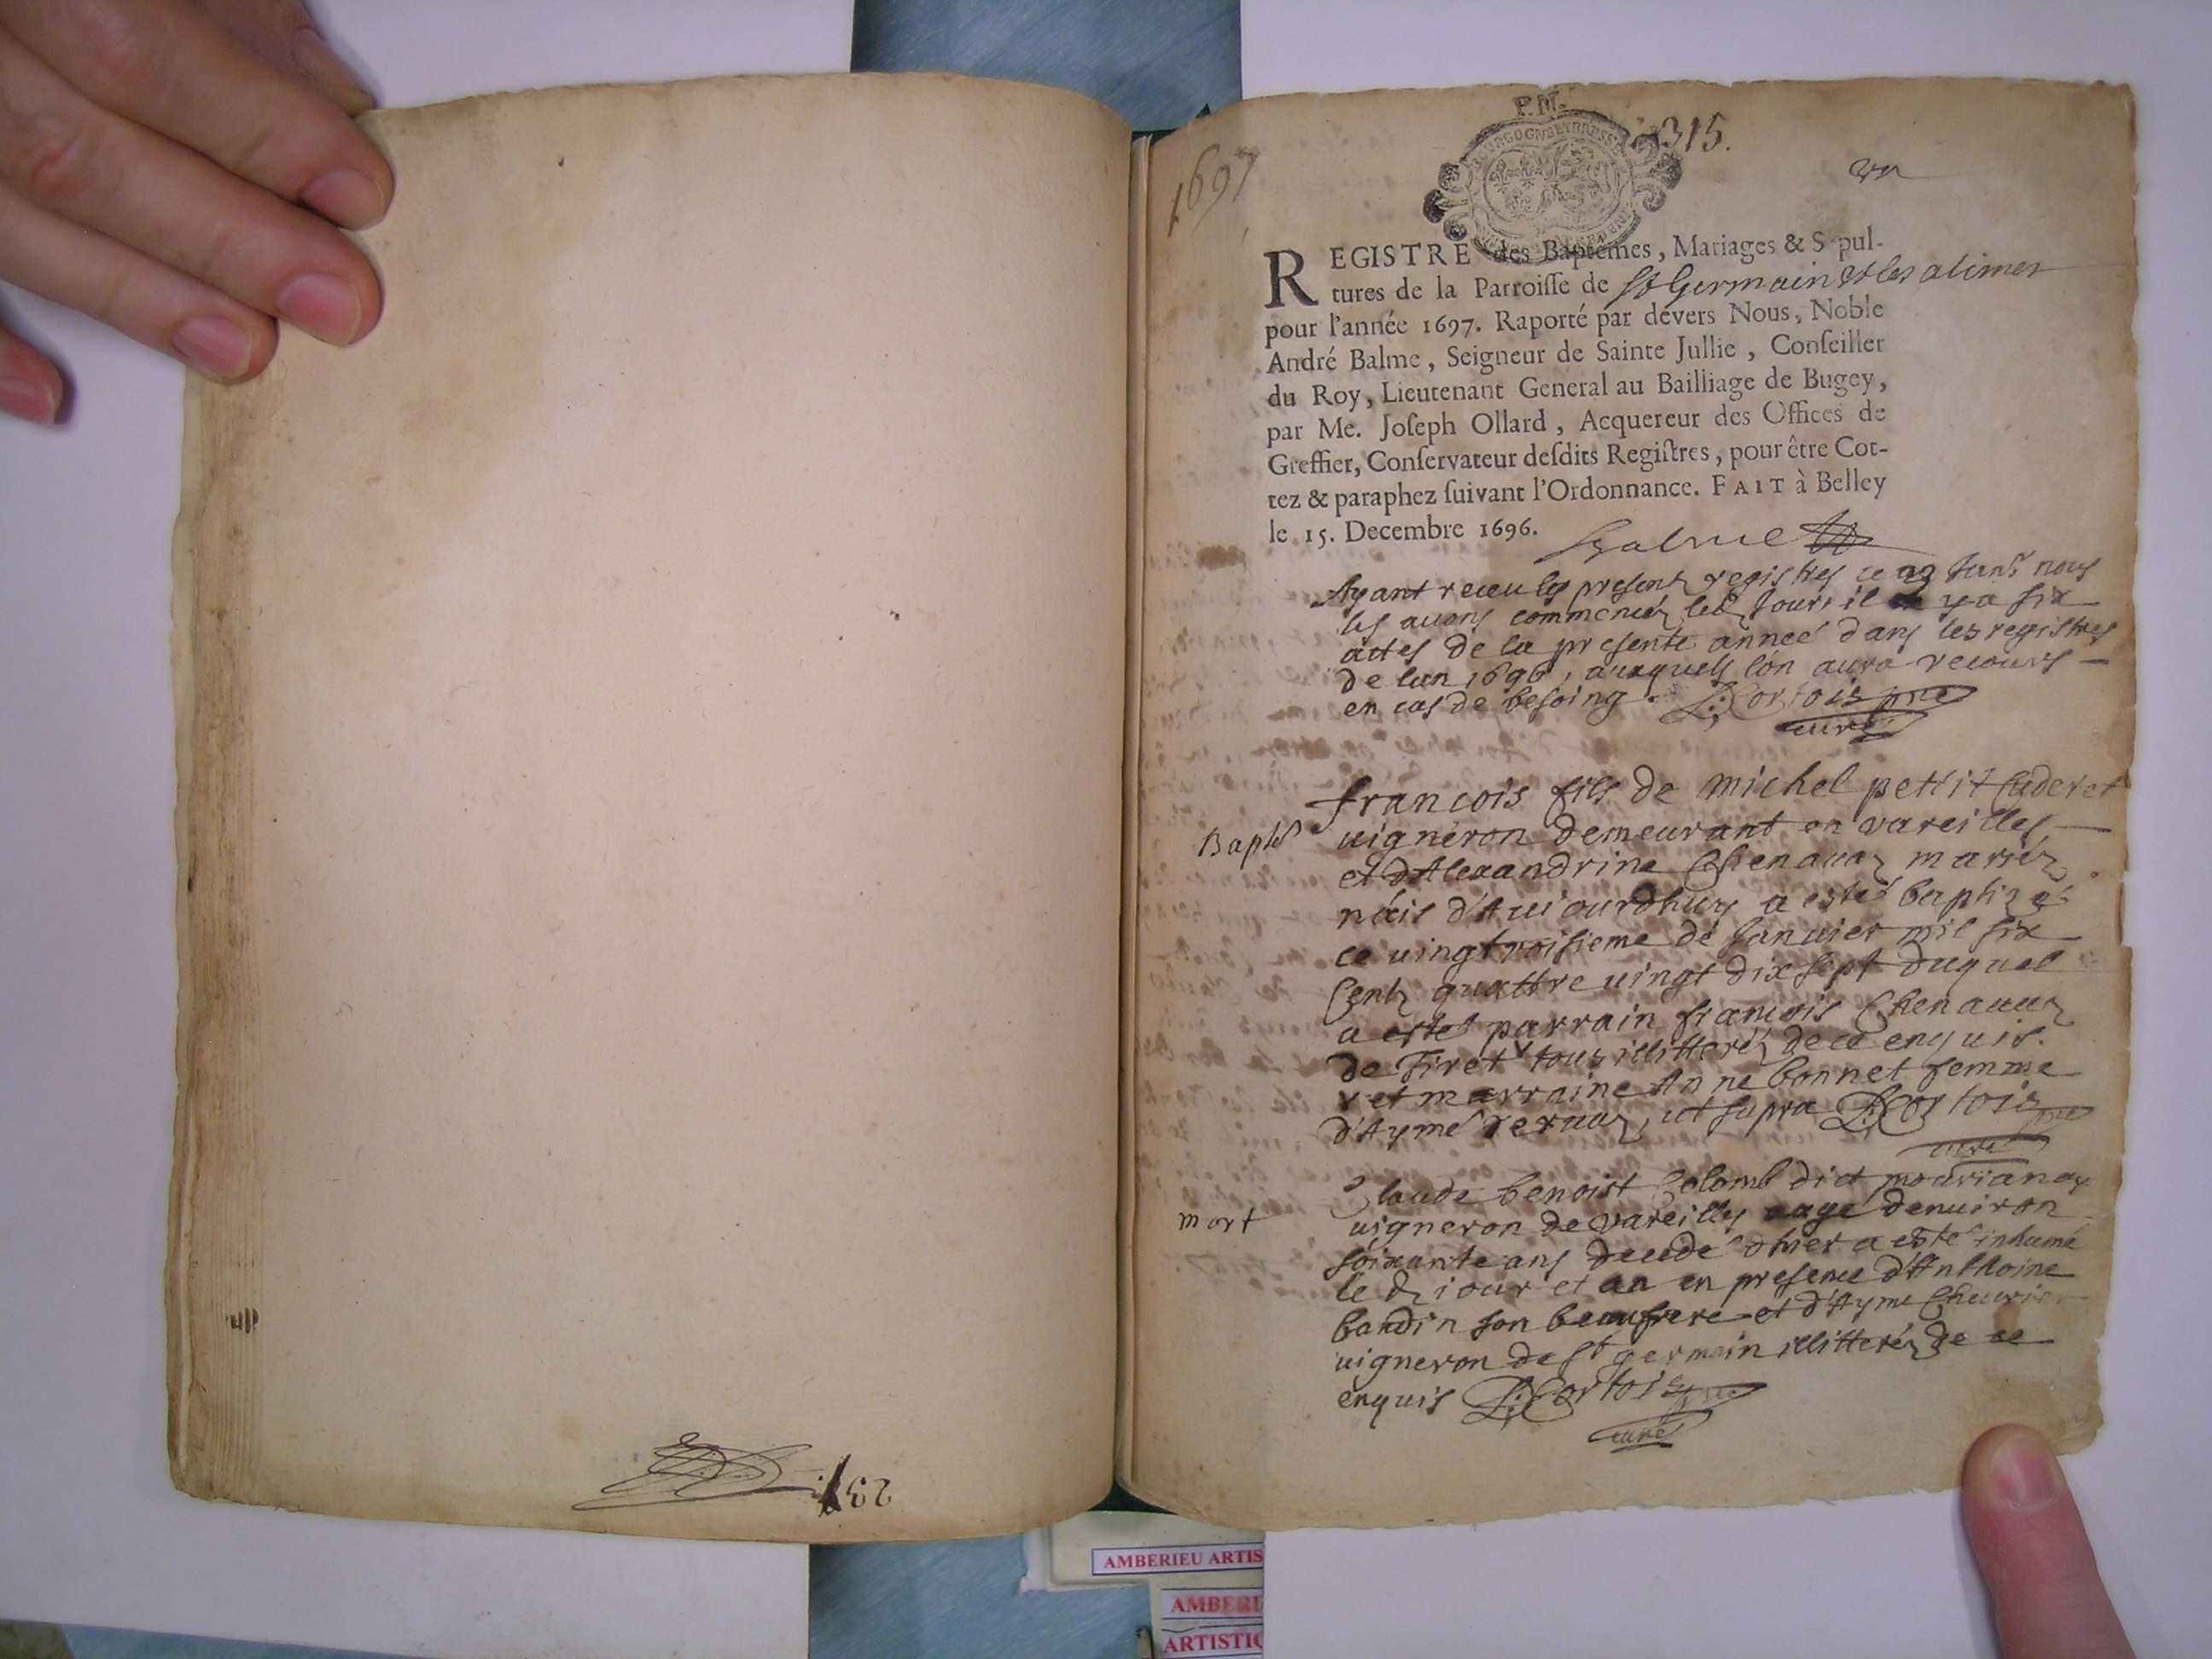 1697
P. M.
315.
REGISTRE des Baptêmes, Mariages & Sepul-
tures de la Parroisse de St Germain & les alimes
pour l'année 1697. Raporté par devers Nous, Noble
André Balme, Seigneur de Sainte Jullie, Conseiller
du Roy, Lieutenant General au Bailliage de Bugey,
par Me. Joseph Ollard, Acquereur des Offices de
Greffier, Conservateur desdits Registres, pour être Cot-
tez & paraphez suivant l'Ordonnance. FAIT à Belley
le 15. Decembre 1696.
Ayant receu les present registres ce 23 Janr nous
les auons commencéz led Jour, il y a six
actes de la presente anneé dans les registres
de lan 1696, auxquels lón aura recours
en cas de besoing. Cortois pre
curé
Bapte
francois fils de michel pettit Caderet
uigneron demeurant en vareilles
et d'Alexandrine Chenauaz mariéz
náis d'Auiourdhuy a esté baptizé
ce uingtroisieme de Januier mil six
Centz quattre uingt dix sept duquel
a esté parrain francois Chenauaz
de Tiret v tous illitteréz de ce enquis.
v et marraine Anne bonnet femme
d'Aymé deruaz, ut supra Cortois pre
curé
mort
Claude benoist Colomb dict mourianaz
uigneron de vareilles aage denuiron
soixante ans decedé d'hier a esté inhumé
le d jour et an en presence d'Anthoine
baudin son beaufrere et d'Ayme Cheurier
uigneron de St germain illitteréz de ce
enquis Cortois pre
curé
237
AMBERIEU ARTIS
AMBERI
ARTISTIQ